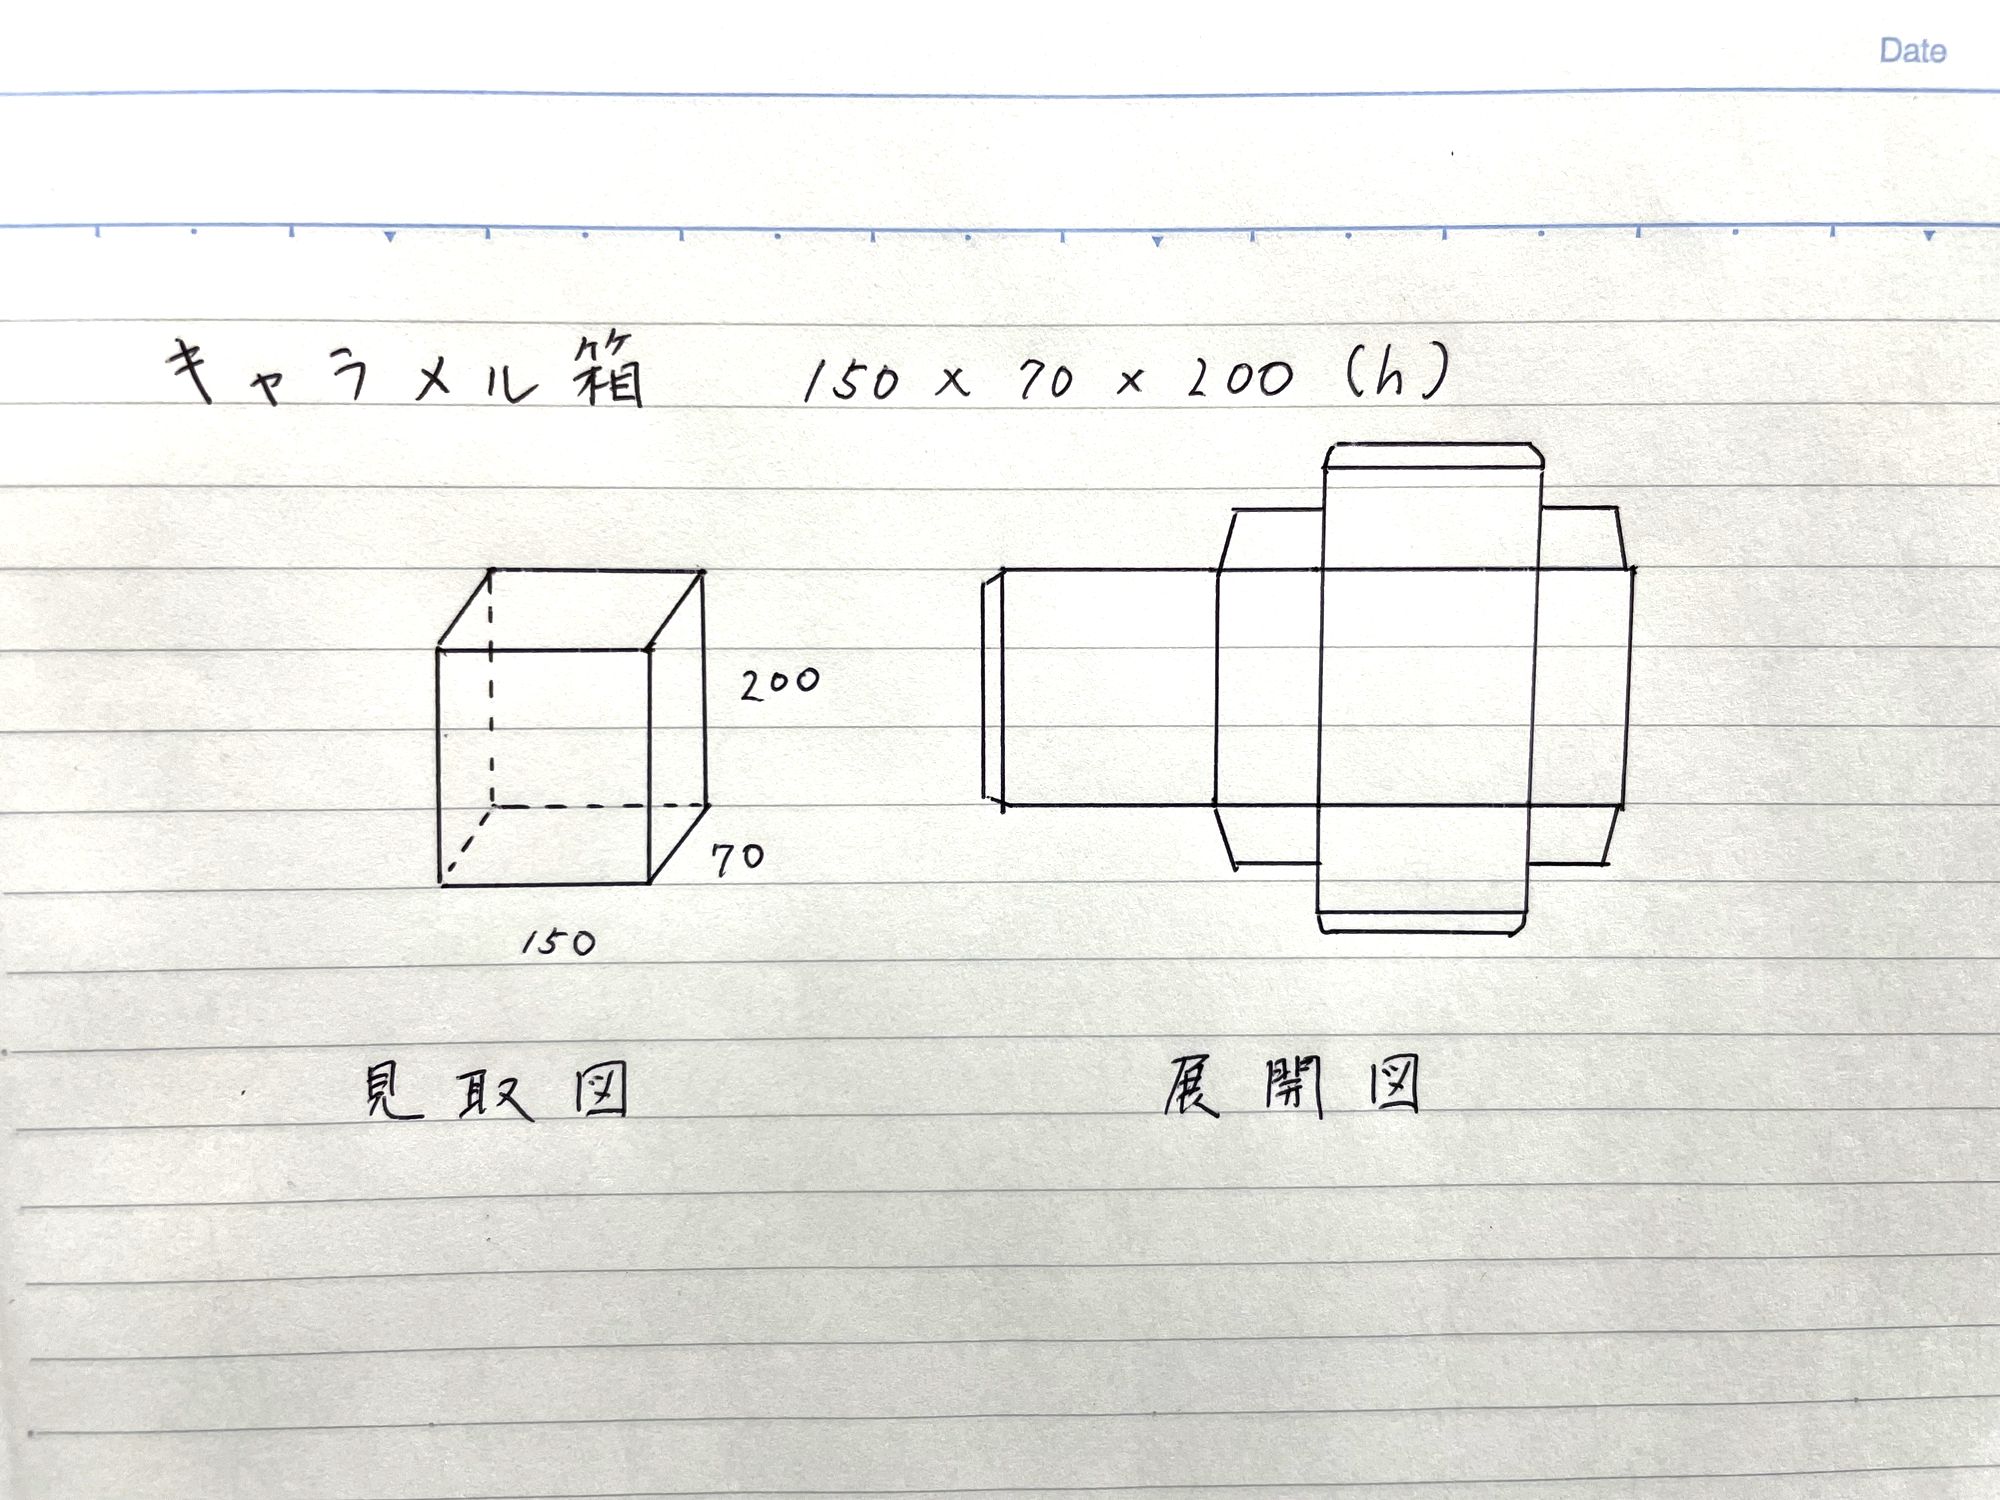 Date
キャラメル箱 150 × 70 × 200 (h)
200
70
150
見取図 展開図